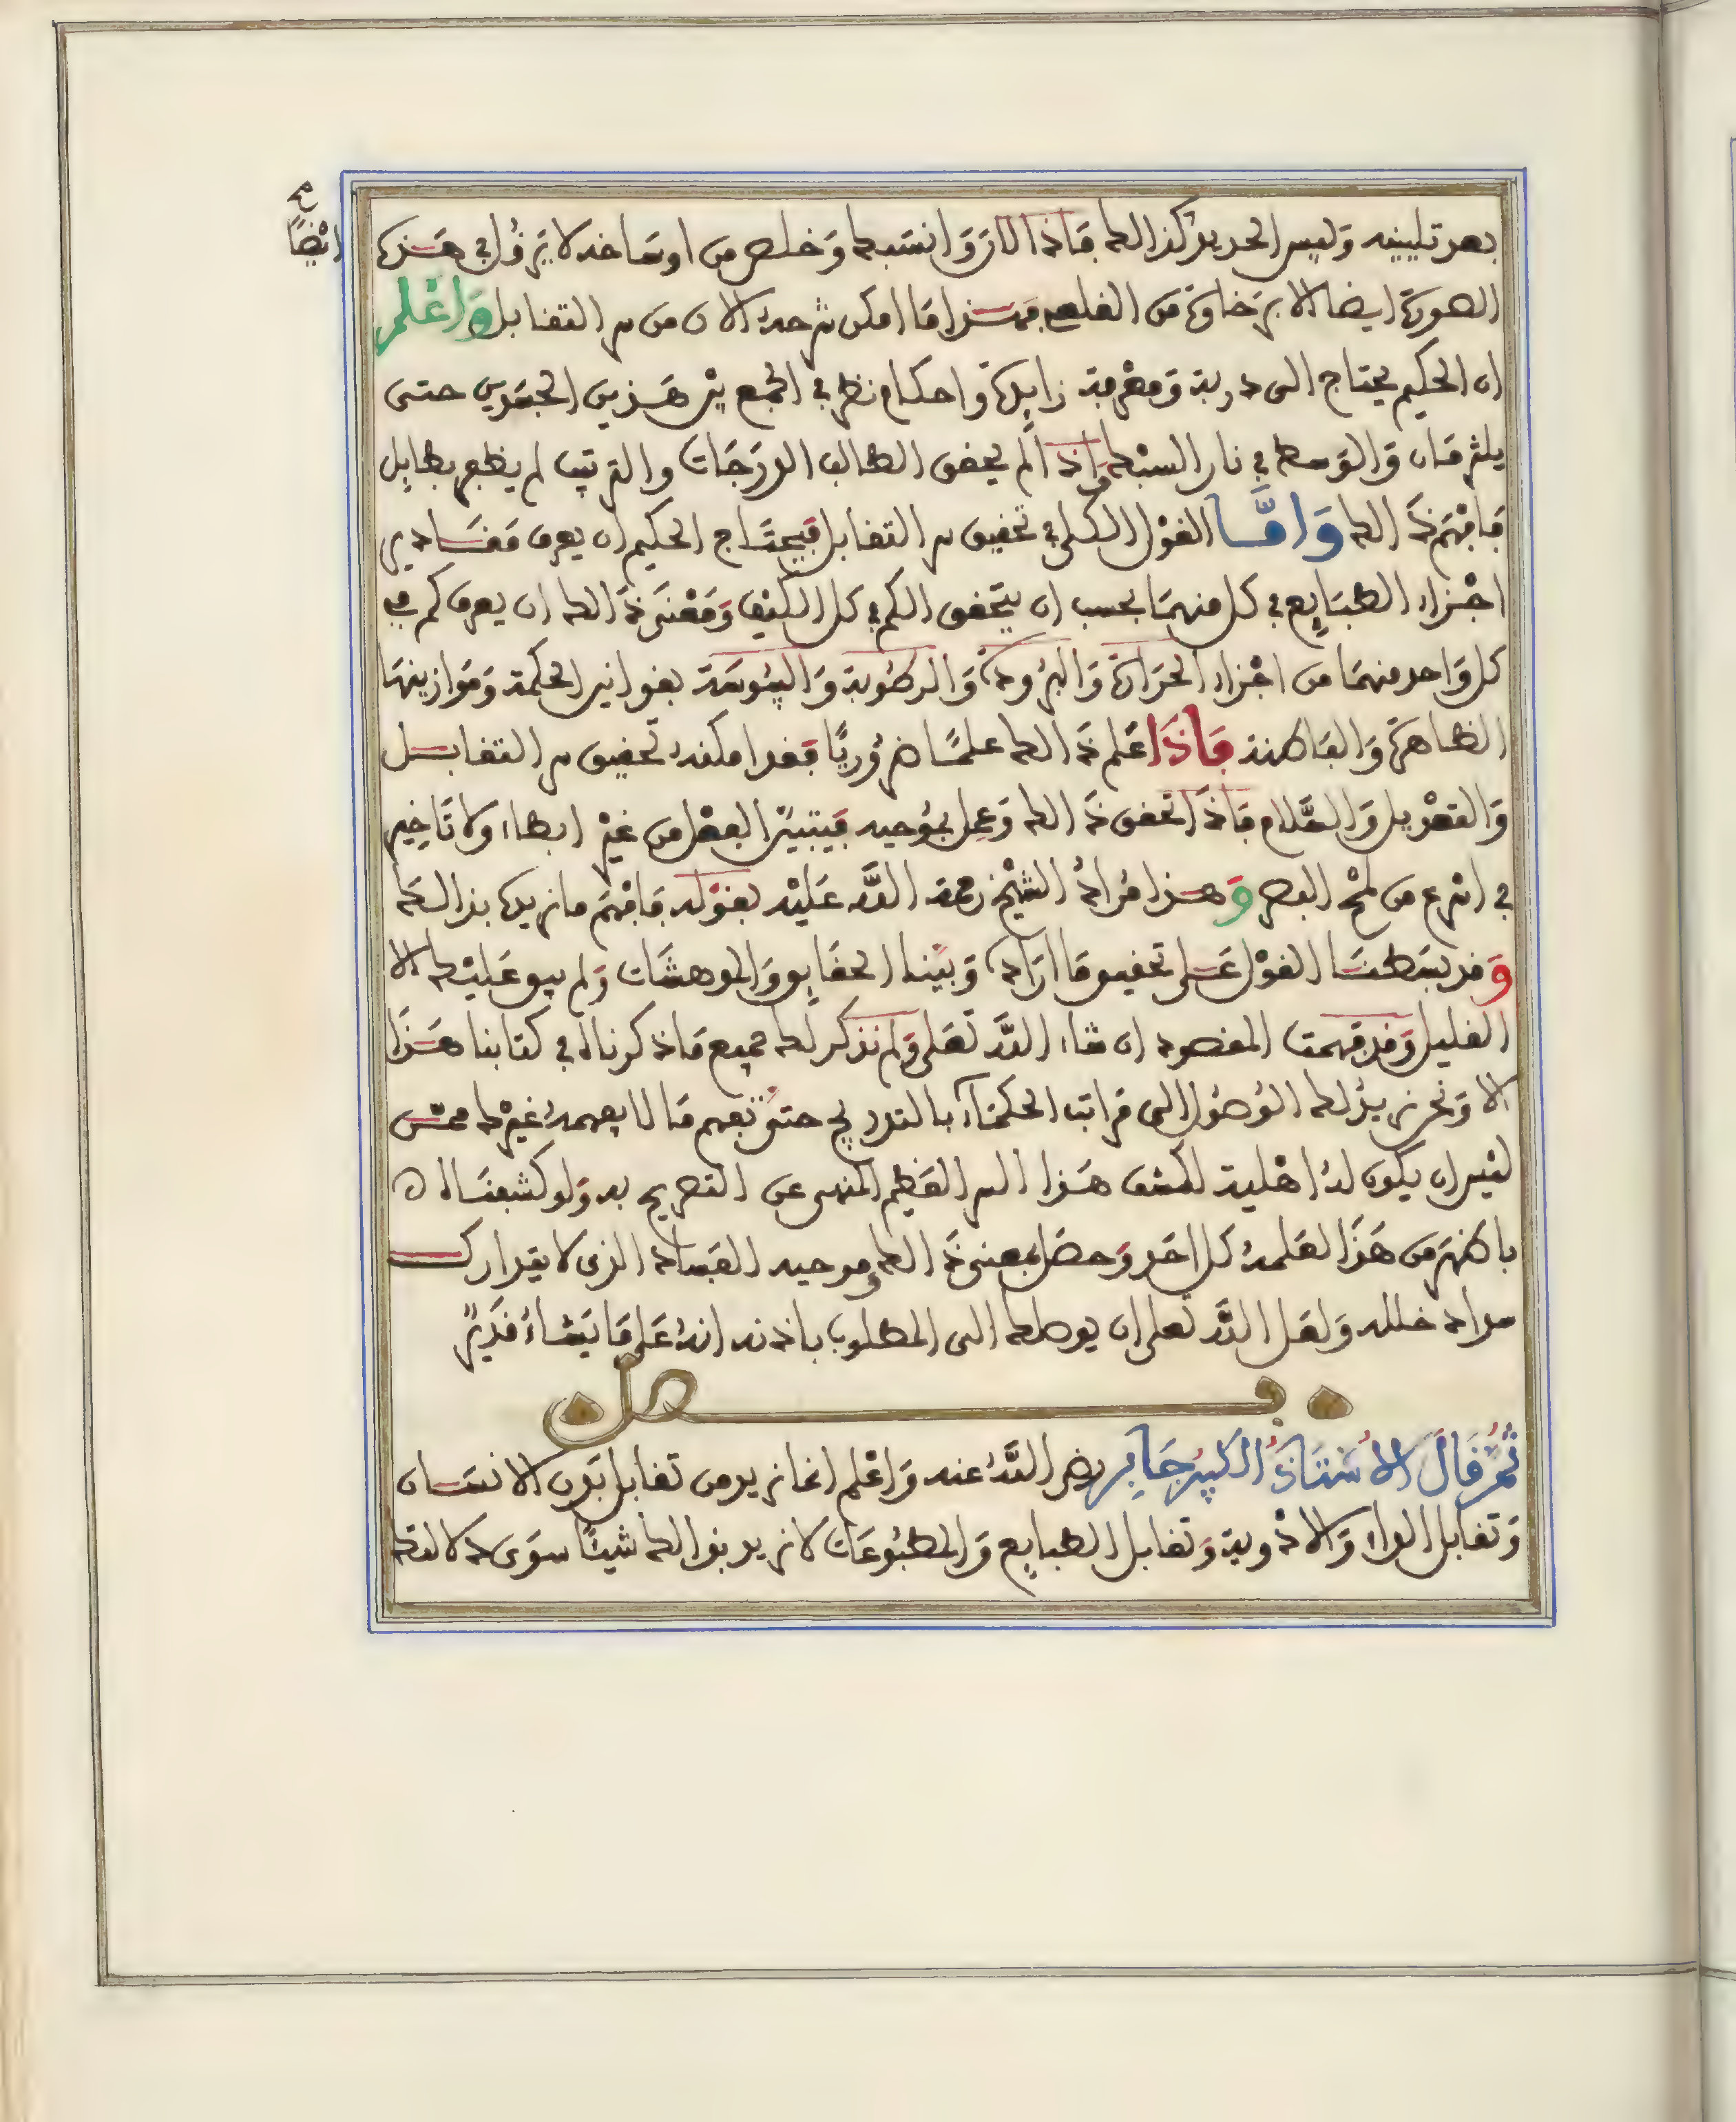 بعد تليينه وَليس الحديد كذالك فَاذا لان وَانسبك وَخلص من اوساخه لا يزول في هَذه
ايْضًا
الصورة ايضا الا برَخاوة من القلع فهذا مَا امكن شرحهُ الان من سر التقابل وَاعْلم
ان الحكيم يحتاج الى دربة وَمعْرفة زايدة وَاحكام نظر في الجمع بيْن هَذين الجسَدين حتى
يلتزمَان وَالوَسط في نار السبْك وَاذا لم يحقق الطالب الدرَجَات والترتيب لم يظفر بطايل
فَافْهَم ذَالك وَامَّا القوْل الكلي في تحقيق سر التقابل فيحتَاج الحكيم ان يعرف مَقَادير
اجْزاء الطبَايع في كل منهمَا بحسب ان يتحقق الكم في كل الكيْف وَمَعْنَى ذَالك ان يعرف كم في
كل وَاحد منهمَا من اجْزاء الحَرَارة وَالبرُودة وَالرطُوبة وَاليبُوسَة بقوانين الحكمة وَمَوازينهَا
الظاهرَة وَالبَاطنة فَاذَا عَلم ذَالك علمًا ضرُوريًا فقد امكنهُ تحقيق سر التقابل
وَالتعْديل وَالسَّلام فاذَا تحقق ذَالك وَعمل بموُجبه فيتبيّن الفعْل من غيْر ابطاء ولا تَاخير
في اسْرع من لمْح البصر وَهذا مُرادُ الشيْخ رحمة اللَّه عَليْه بقوْله فَافْهَم ما نريد بذالك
وَقد بسَطنَا القوْل عَلى تحقيق مَا ارَاد وَبيّنا الحقَايق وَالموهشَات وَلم يبق عَليْك الا
القليل وَقد فهمت المقصود ان شاء اللَّه تعَلى وَلم نذكر لك جميع مَا ذكرناه في كتابنا هَذَا
الا وَنحن نريدُ لك الوُصُول الى مَراتب الحكمَاء بالتدريج حتى تفهم مَا لا يفهمهُ غيْرك ممّن
ليْس ان يكون لهُ اهْلية لكشف هَذا السر العَظيم المنهى عن التصريح به وَلو كشفنَاه
باظهَر من هَذَا لعَلمهُ كل احَد وَحصَل بمعنى ذَالك وموجبه الفسَاد الذي لا يتدارك
مداد خلله وَلعَل اللَّه تعلى ان يوصلك الى المطلوب باذنه انهُ عَلى مَا يَشَاءُ قدَيْرٌ
فصل
ثمَّ قَالَ الاُسْتَاذُ الكبيْرُ جَابر رضي اللَّهُ عنه وَاعْلم انما نريد من تقابل بَدن الانسَان
وَتقابل الداء وَالادْوية وَتقابل الطبايع وَالمطبُوعَات لا نريد بذالك شيئًا سوَى دلالتك